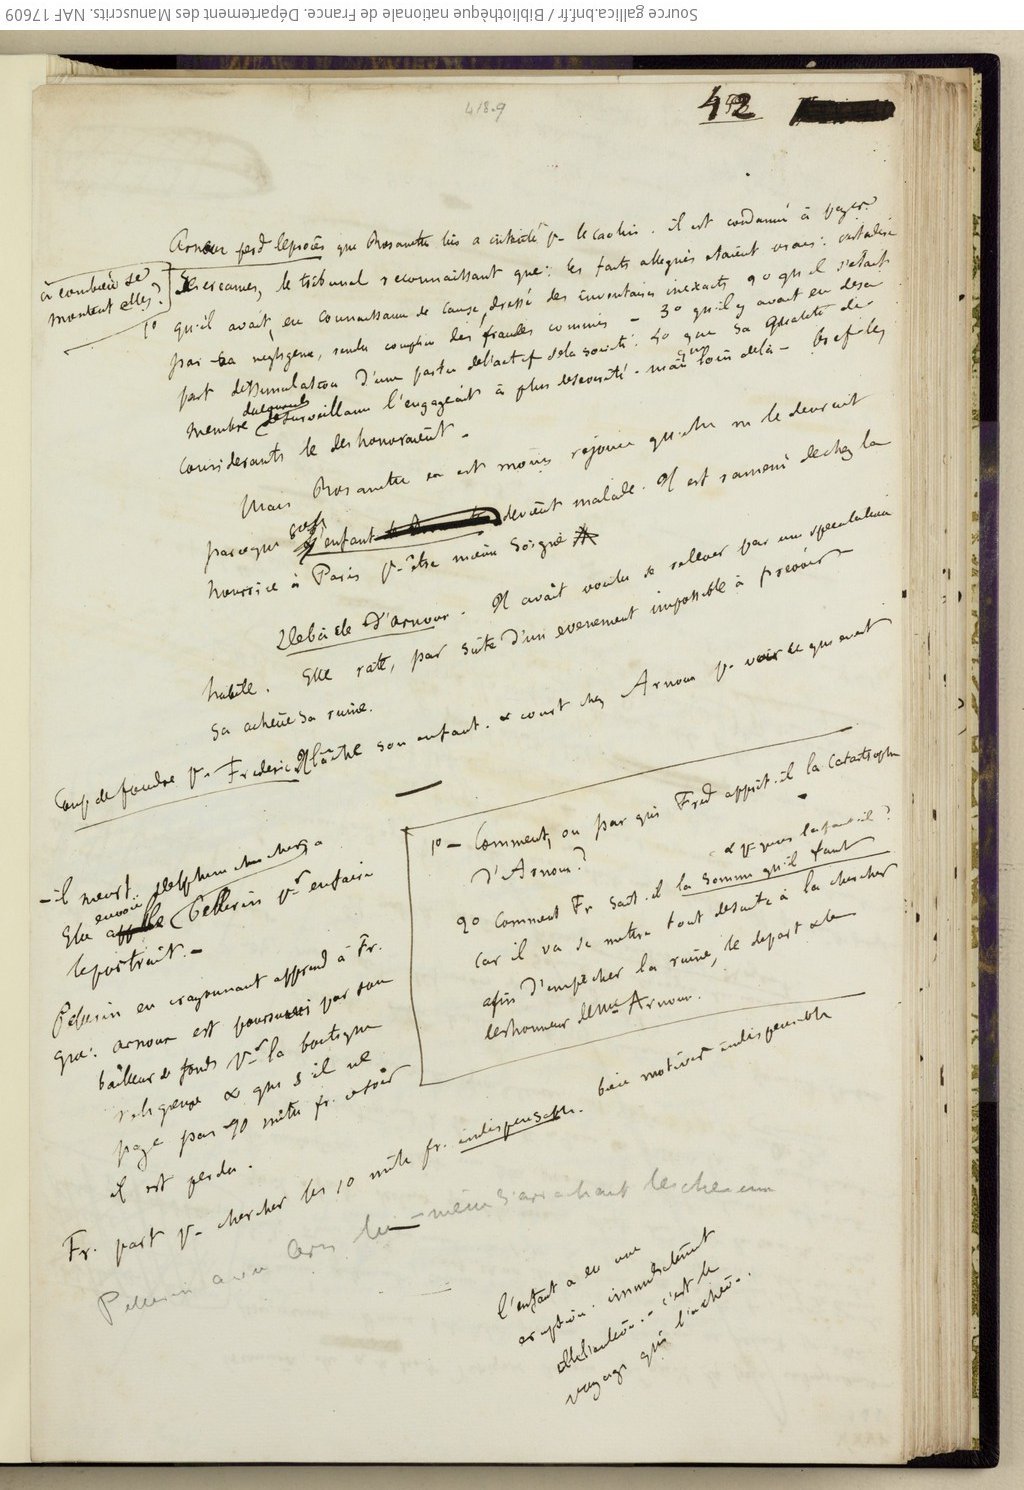 Source gallica.bnf.fr / Bibliothèque nationale de France. Département des Manuscrits. NAF 17609
418.9
42
Arnoux perd le procès que Rosanette lui a intenté pr le caolin. il est condamné à payer
à combien se
montent elles?
les creances, le tribunal reconnaissant que: les faits allegués étaient vrais:
1o qu'il avait, en connaissance de cause, dressé des inventaires inexacts 2o qu'il s'etait
par sa negligence, rendu complice des fraudes commises - 3o qu'il y avait eu de sa
part dissimulation d'une partie de l'actif de la société: 4o que sa qualité de
membre de surveillance l'engageait à plus de severité. -
considerants le deshonoraient -
Mais Rosanette en est moins rejouie qu'elle ne le devrait
parceque son enfant devient malade. Il est ramené de chez la
nourrice à Paris pr être mieux soigné
Debâcle d'Arnoux. Il avait voulu se relever par une speculation
habile. Elle rate, par suite d'un evenement impossible à prévoir -
ça acheve sa ruine.
Coup de foudre pr Frederic. Il lâche son enfant. & court chez Arnoux pr voir ce qui en est
- il meurt.
Elle envoie Delphine chercher
Pellerin pr en faire
le portrait. -
Pellerin en crayonnant apprend à Fr.
que: arnoux est poursuivi par son
bailleur de fonds pr la boutique
religieuse & que s'il ne
paye pas 10 mille fr. ce soir
il est perdu.
1o - Comment, ou par qui Fred apprit-il la catastrophe
d'Arnoux?
2o Comment Fr sait-il la somme qu'il faut
car il va se mettre tout de suite à la chercher
afin d'empêcher la ruine, le depart & le
deshonneur de Me Arnoux.
Fr. part pr chercher les 10 mille fr. indispensable. bien motiver indispensable
Pellerin lui-même s'arrachant les cheveux
l'enfant a eu une
eruption. immediatement
c'est le
voyage qui l'acheve.